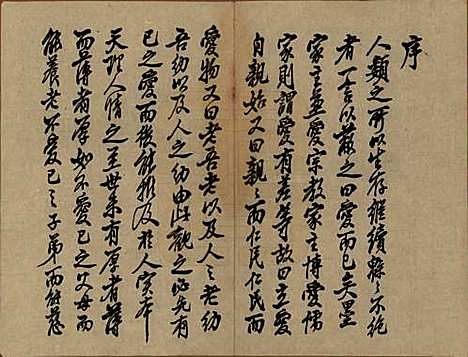 序
人類之所以生存繼續緜緜不絕
者一言以蔽之曰愛而已矣墨
家主兼愛宗教家主博愛儒
家則謂愛有差等故曰立愛
自親始又曰親親而仁民仁民而
愛物又曰老吾老以及人之老幼
吾幼以及人之幼由此觀之必先有
己之愛而後能推及於人實本
天理人情之至世未有厚者薄
而薄者厚如不愛己之父母而
能養老不愛己之子弟而能慈